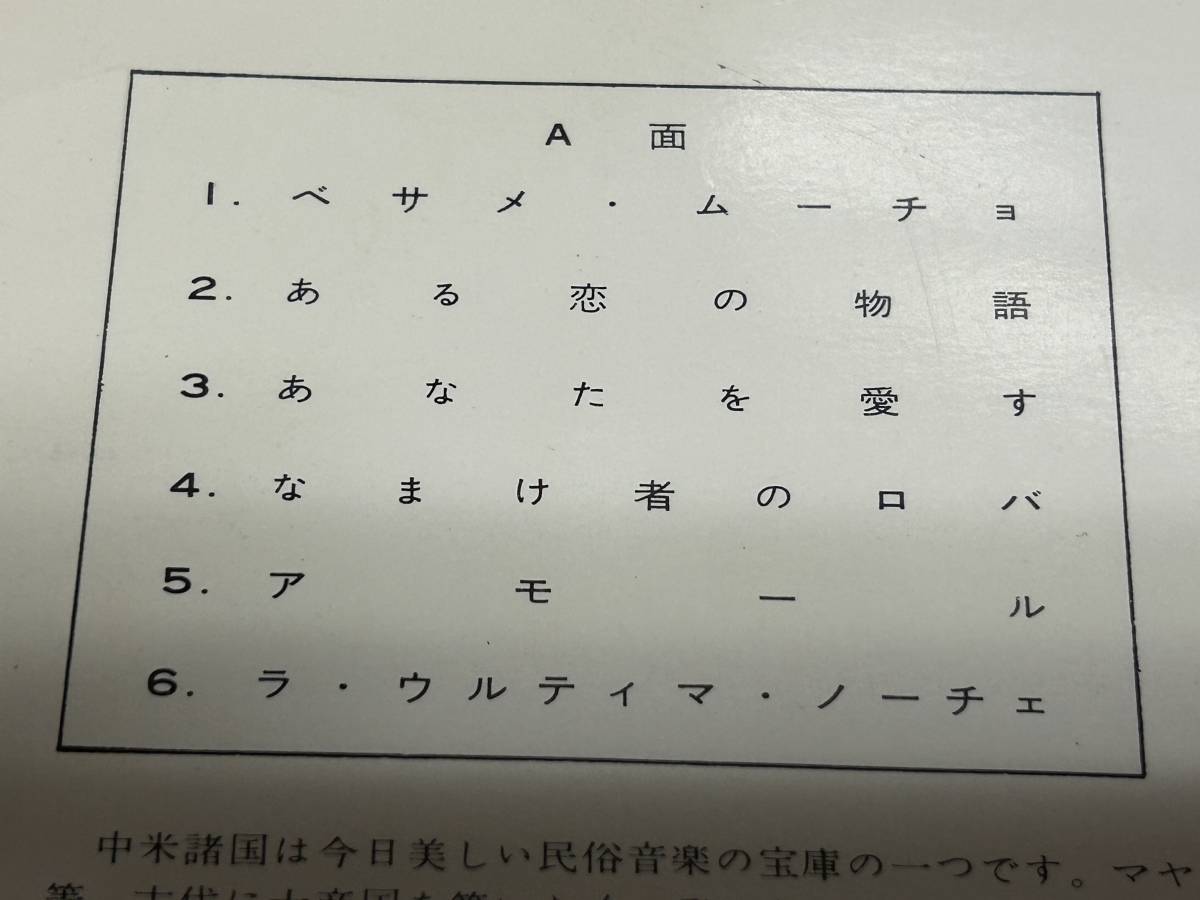 A面
1. ベサメ・ムーチョ
2. ある恋の物語
3. あなたを愛す
4. なまけ者のロバ
5. アモール
6. ラ・ウルティマ・ノーチェ
中米諸国は今日美しい民俗音楽の宝庫の一つです。マヤ